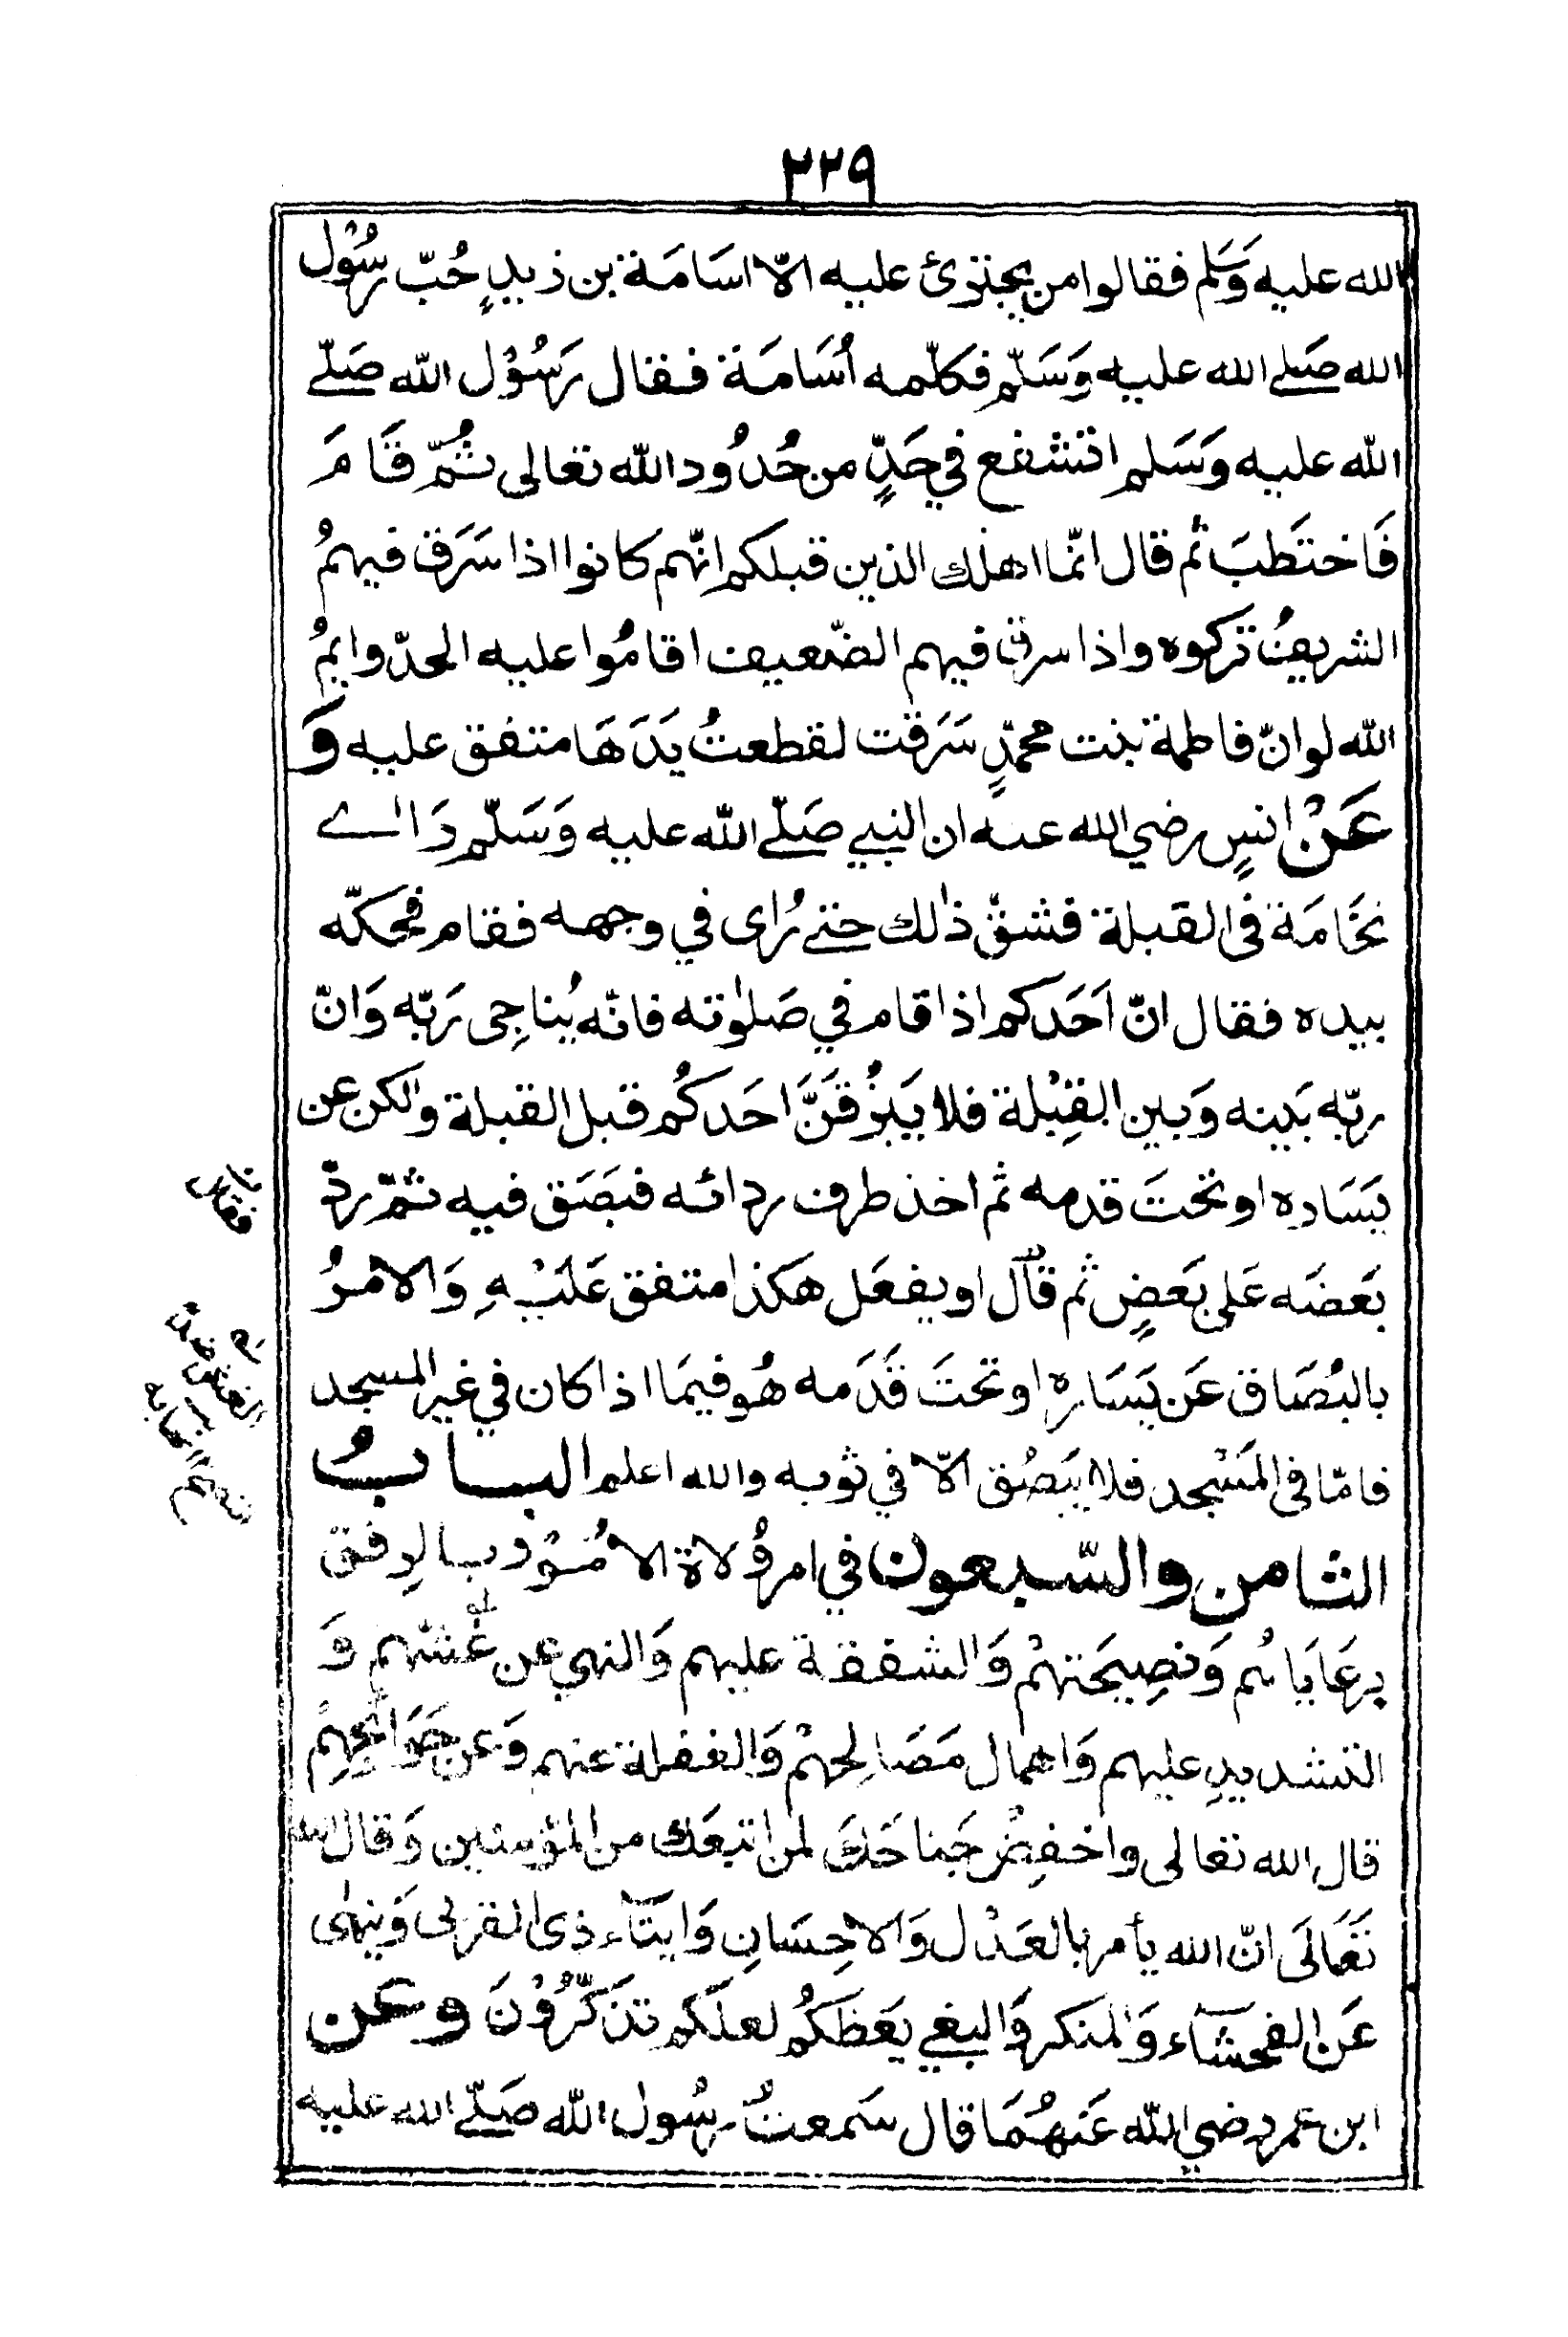 ٢٢٩
الله عليه وَسَلم فقالوا من يجتزئ عليه الّا اسَامَة بن زيدٍ حُبّ رسُوْل
الله صَلے الله عليه وَسَلّم فكلّمه اُسَامَة فقال رَسُوْل الله صَلّے
الله عليه وَسَلم اتشفع في حَدٍّ من حُدُود الله تعالى ثُمّ قَامَ
فَاختَطبَ ثم قال انّما اهلك الذين قبلكم انّهم كانوا اذا سَرَق فيهمُ
الشريفُ تركوه واذا سرق فيهم الضّعيف اقامُوا عليه الحدّ وايمُ
الله لو انّ فاطمة بنت محمّدٍ سَرَقت لقطعتُ يَدَهَا متفق عليه وَ
عَنْ انسٍ رضي الله عنه ان النبي صَلّے الله عليه وَسَلّم رَاے
نخَامَة فى القبلة فشقّ ذٰلك حتے رُاى في وجهه فقام فحكّه
بيده فقال انّ اَحَدكم اذا قام في صَلٰوته فانّه يُناجِى رَبّه وَانّ
ربّه بَينه وَبين القِبْلة فلا يَبْزُقَنَّ احَدكُم قبل القبلة والكن عن
يَسَاره او تحتَ قدمه ثم اخذ طرف ردائه فبَصَق فيه ثمّ ردّ
بَعضَه عَلى بَعضٍ ثم قال او يفعَل هكذا متفق عَلَيْهِ وَالامرُ
بالبُصَاق عَن يَسَاره او تحتَ قَدَمه هُو فيمَا اذا كان في غير المسجد
فامّا فى المَسْجد فلا يَبصُق الّا في ثوبه والله اعلم البابُ
الثامن والسّبعون في امر وُلاة الامُوْر بالرِفق
برعَايَاهُم وَنصِيحَتهمْ وَالشفقة عليهم وَالنهي عن غشّهم وَ
التشديدِ عليهم وَاهمال مَصَالِحهمْ وَالغفلة عنهم وَعن حَوَائجِهِمْ
قال الله تعالى واخفِضْ جَناحَكَ لمن اتبعَك من المؤمنين وَقال الله
تَعَالَى انّ الله يأمر بالعَدْل وَالاحِسَانِ وَايتَآء ذى القربى وَينهٰى
عَن الفحشَآء وَالمنكر وَالبغي يَعَظكُم لعلّكم تذَكّرُوْنَ وعن
ابن عمر رضي الله عَنهُمَا قال سَمعتُ رسُول الله صَلّے الله عليه